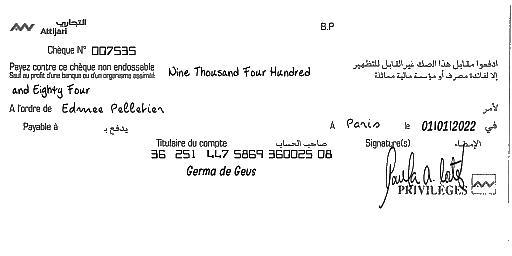 التجاري
Attijari
B.P
Chèque N° 007535
Payez contre ce chèque non endossable
Sauf au profit d'une banque ou d'un organisme assimilé
Nine Thousand Four Hundred
ادفعوا مقابل هذا الصك غير القابل للتظهير
إلا لفائدة مصرف أو مؤسسة مالية مماثلة
and Eighty Four
A l'ordre de Edmee Pelletier
لأمر
Payable à
يدفع بـ
A Paris le 01/01/2022 في
Titulaire du compte صاحب الحساب
Signature(s) الإمضاء
36 251 447 5869 360025 08
Germa de Geus
PRIVILÈGES